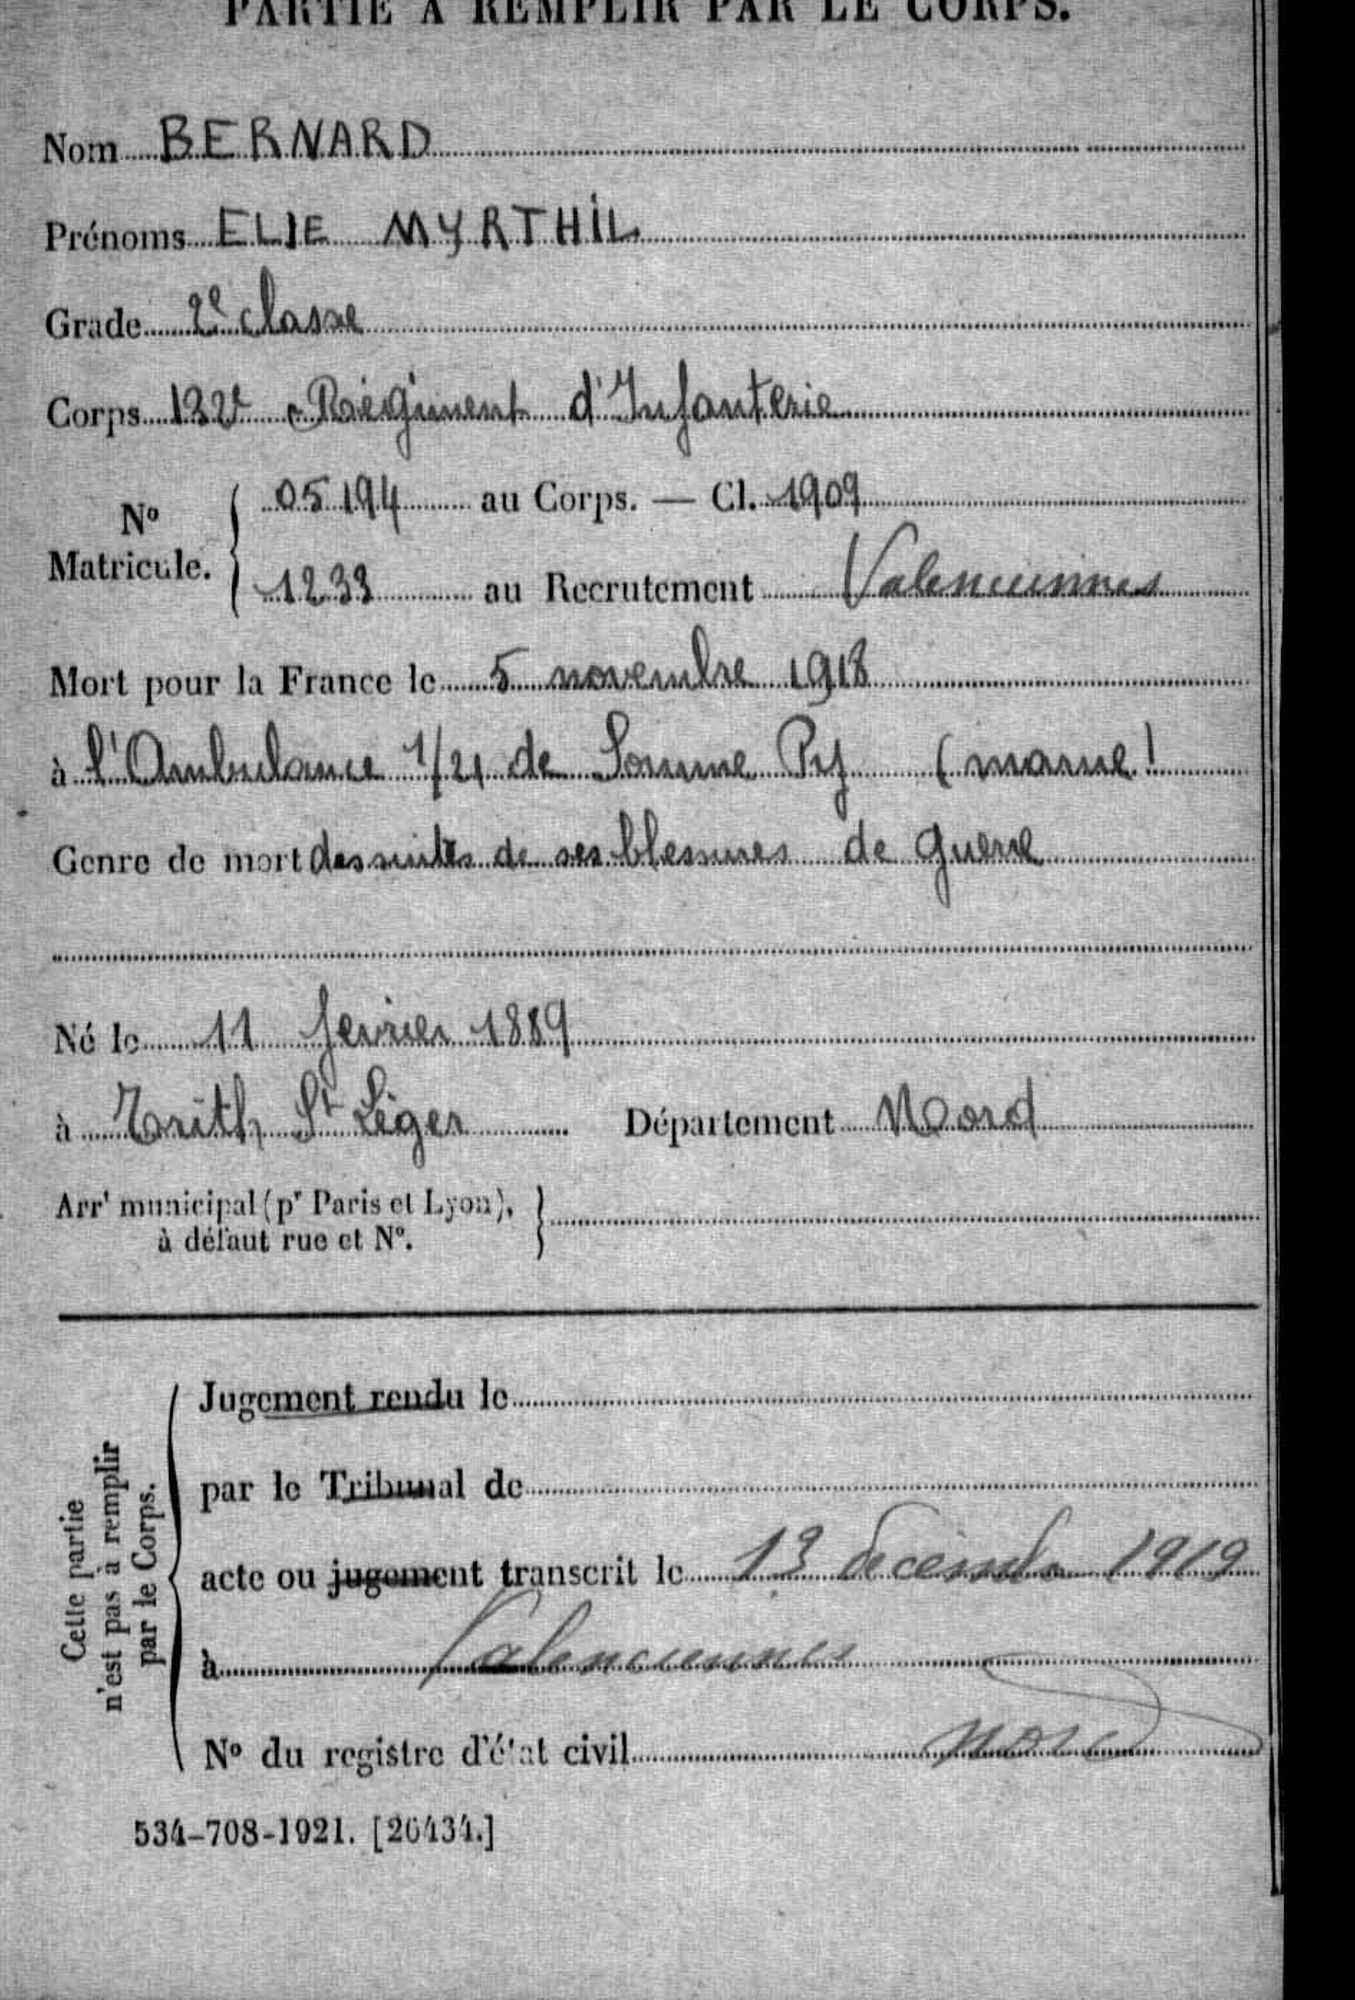 PARTIE À REMPLIR PAR LE CORPS.
Nom BERNARD
Prénoms ELIE MYRTHIL
Grade 2e classe
Corps 132e Régiment d'Infanterie
No Matricule. 05194 au Corps. — Cl. 1909
1233 au Recrutement Valenciennes
Mort pour la France le 5 novembre 1918
à l'Ambulance 1/21 de Somme Py (marne)
Genre de mort des suites de ses blessures de guerre
Né le 11 fevrier 1889
à Trith St Léger Département Nord
Arrt municipal (pr Paris et Lyon),
à défaut rue et No.
Cette partie
n'est pas à remplir
par le Corps.
Jugement rendu le
par le Tribunal de
acte ou jugement transcrit le 13 decembre 1919
à Valenciennes
No du registre d'état civil Nord
534-708-1921. [26434.]